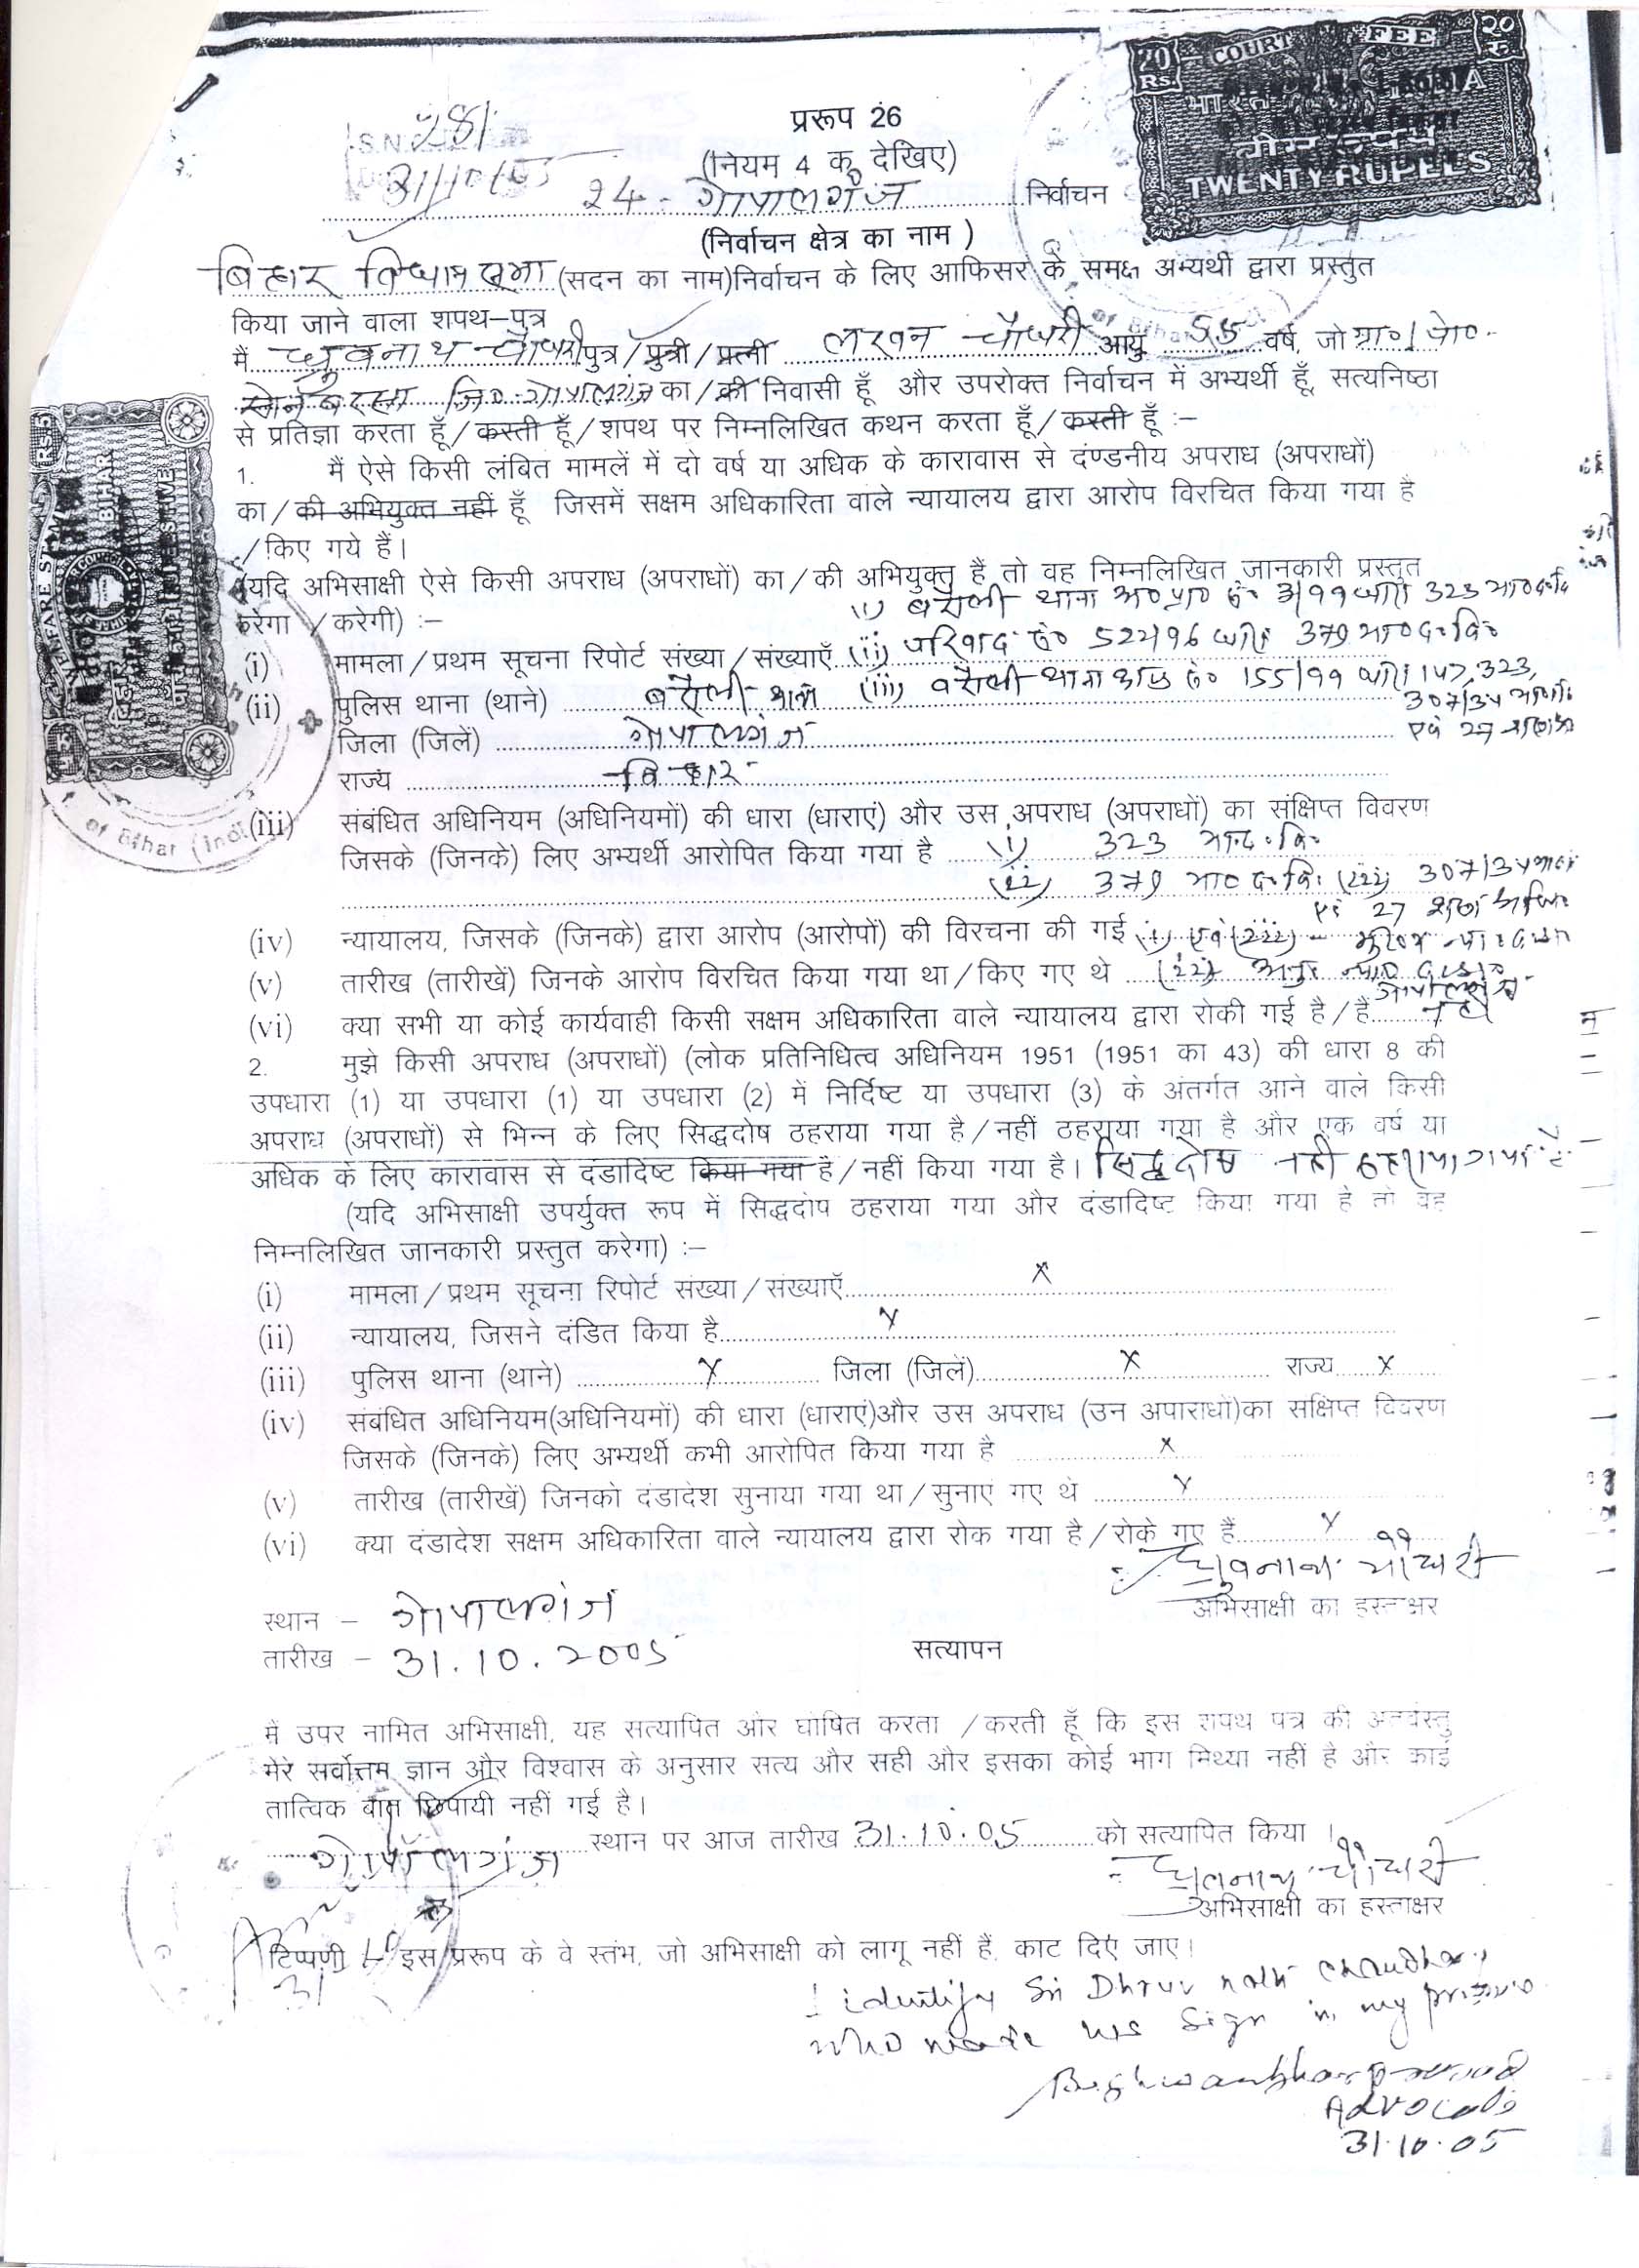 20 Rs. COURT FEE २० रु
भारत INDIA
बीस रुपये
TWENTY RUPEES
S.N. 281
31/10/05
प्ररूप 26
(नियम 4 क देखिए)
24 - गोपालगंज निर्वाचन
(निर्वाचन क्षेत्र का नाम )
बिहार विधान सभा (सदन का नाम)निर्वाचन के लिए आफिसर के समक्ष अभ्यर्थी द्वारा प्रस्तुत
किया जाने वाला शपथ–पत्र
मैं ध्रुवनाथ चौधरी पुत्र/पुत्री/पत्नी लखन चौधरी आयु वर्ष, जो ग्रा०/पो०
सोनबरसा जि० गोपालगंज का/की निवासी हूँ और उपरोक्त निर्वाचन में अभ्यर्थी हूँ, सत्यनिष्ठा
से प्रतिज्ञा करता हूँ/करती हूँ/शपथ पर निम्नलिखित कथन करता हूँ/करती हूँ :–
1. मैं ऐसे किसी लंबित मामलें में दो वर्ष या अधिक के कारावास से दंण्डनीय अपराध (अपराधों)
का/की अभियुक्त नहीं हूँ जिसमें सक्षम अधिकारिता वाले न्यायालय द्वारा आरोप विरचित किया गया है
/किए गये हैं।
(यदि अभिसाक्षी ऐसे किसी अपराध (अपराधों) का/की अभियुक्त हैं तो वह निम्नलिखित जानकारी प्रस्तुत
करेगा /करेगी) :– (i) बरौली थाना सं० 3/99 धारा 323 भा०द०वि
(i) मामला/प्रथम सूचना रिपोर्ट संख्या/संख्याएँ (ii) परिवाद सं० 522/96 धारा 379 भा०द०वि०
(ii) पुलिस थाना (थाने) बरौली थाना (iii) बरौली थाना सं० 155/99 धारा 147, 323,
307/34
जिला (जिलें) गोपालगंज एवं 27
राज्य बिहार
(iii) संबंधित अधिनियम (अधिनियमों) की धारा (धाराएं) और उस अपराध (अपराधों) का संक्षिप्त विवरण
जिसके (जिनके) लिए अभ्यर्थी आरोपित किया गया है (i) 323 भा.द.वि.
(ii) 379 भा०द.वि. (iii) 307/34
एवं 27
(iv) न्यायालय, जिसके (जिनके) द्वारा आरोप (आरोपों) की विरचना की गई (i) एवं (iii) –
(v) तारीख (तारीखें) जिनके आरोप विरचित किया गया था/किए गए थे (ii)
गोपालगंज
(vi) क्या सभी या कोई कार्यवाही किसी सक्षम अधिकारिता वाले न्यायालय द्वारा रोकी गई है/हैं नहीं
2. मुझे किसी अपराध (अपराधों) (लोक प्रतिनिधित्व अधिनियम 1951 (1951 का 43) की धारा 8 की
उपधारा (1) या उपधारा (1) या उपधारा (2) में निर्दिष्ट या उपधारा (3) के अंतर्गत आने वाले किसी
अपराध (अपराधों) से भिन्न के लिए सिद्धदोष ठहराया गया है/नहीं ठहराया गया है और एक वर्ष या
अधिक के लिए कारावास से दंडादिष्ट किया गया है/नहीं किया गया है। सिद्धदोष नहीं ठहराया गया है
(यदि अभिसाक्षी उपर्युक्त रूप में सिद्धदोष ठहराया गया और दंडादिष्ट किया गया है तो वह
निम्नलिखित जानकारी प्रस्तुत करेगा) :–
(i) मामला/प्रथम सूचना रिपोर्ट संख्या/संख्याएँ x
(ii) न्यायालय, जिसने दंडित किया है x
(iii) पुलिस थाना (थाने) x जिला (जिलें) x राज्य x
(iv) संबंधित अधिनियम(अधिनियमों) की धारा (धाराएं)और उस अपराध (उन अपाराधों)का संक्षिप्त विवरण
जिसके (जिनके) लिए अभ्यर्थी कभी आरोपित किया गया है x
(v) तारीख (तारीखें) जिनको दंडादेश सुनाया गया था/सुनाएं गए थे x
(vi) क्या दंडादेश सक्षम अधिकारिता वाले न्यायालय द्वारा रोक गया है/रोके गए हैं x
ध्रुवनाथ चौधरी
अभिसाक्षी का हस्ताक्षर
स्थान – गोपालगंज
तारीख – 31.10.2005
सत्यापन
मैं उपर नामित अभिसाक्षी, यह सत्यापित और घोषित करता /करती हूँ कि इस शपथ पत्र की अंतर्वस्तु
मेरे सर्वोत्तम ज्ञान और विश्वास के अनुसार सत्य और सही और इसका कोई भाग मिथ्या नहीं है और कोई
तात्विक बात छिपायी नहीं गई है।
गोपालगंज स्थान पर आज तारीख 31.10.05 को सत्यापित किया ।
ध्रुवनाथ चौधरी
अभिसाक्षी का हस्ताक्षर
टिप्पणी इस प्ररूप के वे स्तंभ, जो अभिसाक्षी को लागू नहीं हैं, काट दिएं जाए।
I identify Sri Dhruv nath Chaudhary
who made his sign in my presence
Advocate
31.10.05